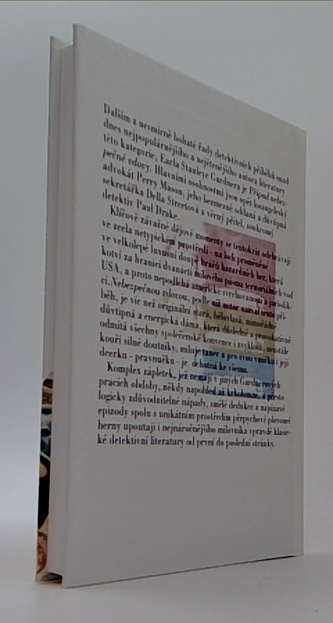 Dalším z nesmírně bohaté řady detektivních příběhů snad
dnes nejpopulárnějšího a nejčtenějšího autora literatury
této kategorie, Earla Stanleye Gardnera je Případ nebez-
pečné vdovy. Hlavními osobnostmi jsou opět losangeleský
advokát Perry Mason, jeho neméně oddaná a důvtipná
sekretářka Della Streetová a věrný přítel, soukromý
detektiv Paul Drake.
Klíčově závažné dějové momenty se tentokrát odehrávají
ve zcela netypickém prostředí - na loch proměněné
ve velkolepé luxusní doupě hráčů hazardních her, která
kotví za hranicí dvanácti mílového pásma teritoriálních vod
USA, a proto nepodléhá americké svrchovanosti a jurisdik-
ci. Nebezpečnou vdovou, podle níž autor nazval tento pří-
běh, je víc než originální stará, bělovlasá,
důvtipná a energická dáma, která důsledně a
odmítá všechny společenské konvence i zvyklosti, neustále
kouří silné doutníky, miluje tanec a pro svou vnučku i její
dcerku - pravnučku - je ochotná ke všemu.
Komplex zápletek, jež nemají v jiných Gardnerových
pracích obdoby, někdy napohled až krkolomné, a přesto
logicky zdůvodnitelné nápady, smělé dedukce a napínavé
epizody spolu s unikátním prostředím přepychové plovoucí
herny upoutají i nejnáročnějšího milovníka zpravdě klasic-
ké detektivní literatury od první do poslední stránky.